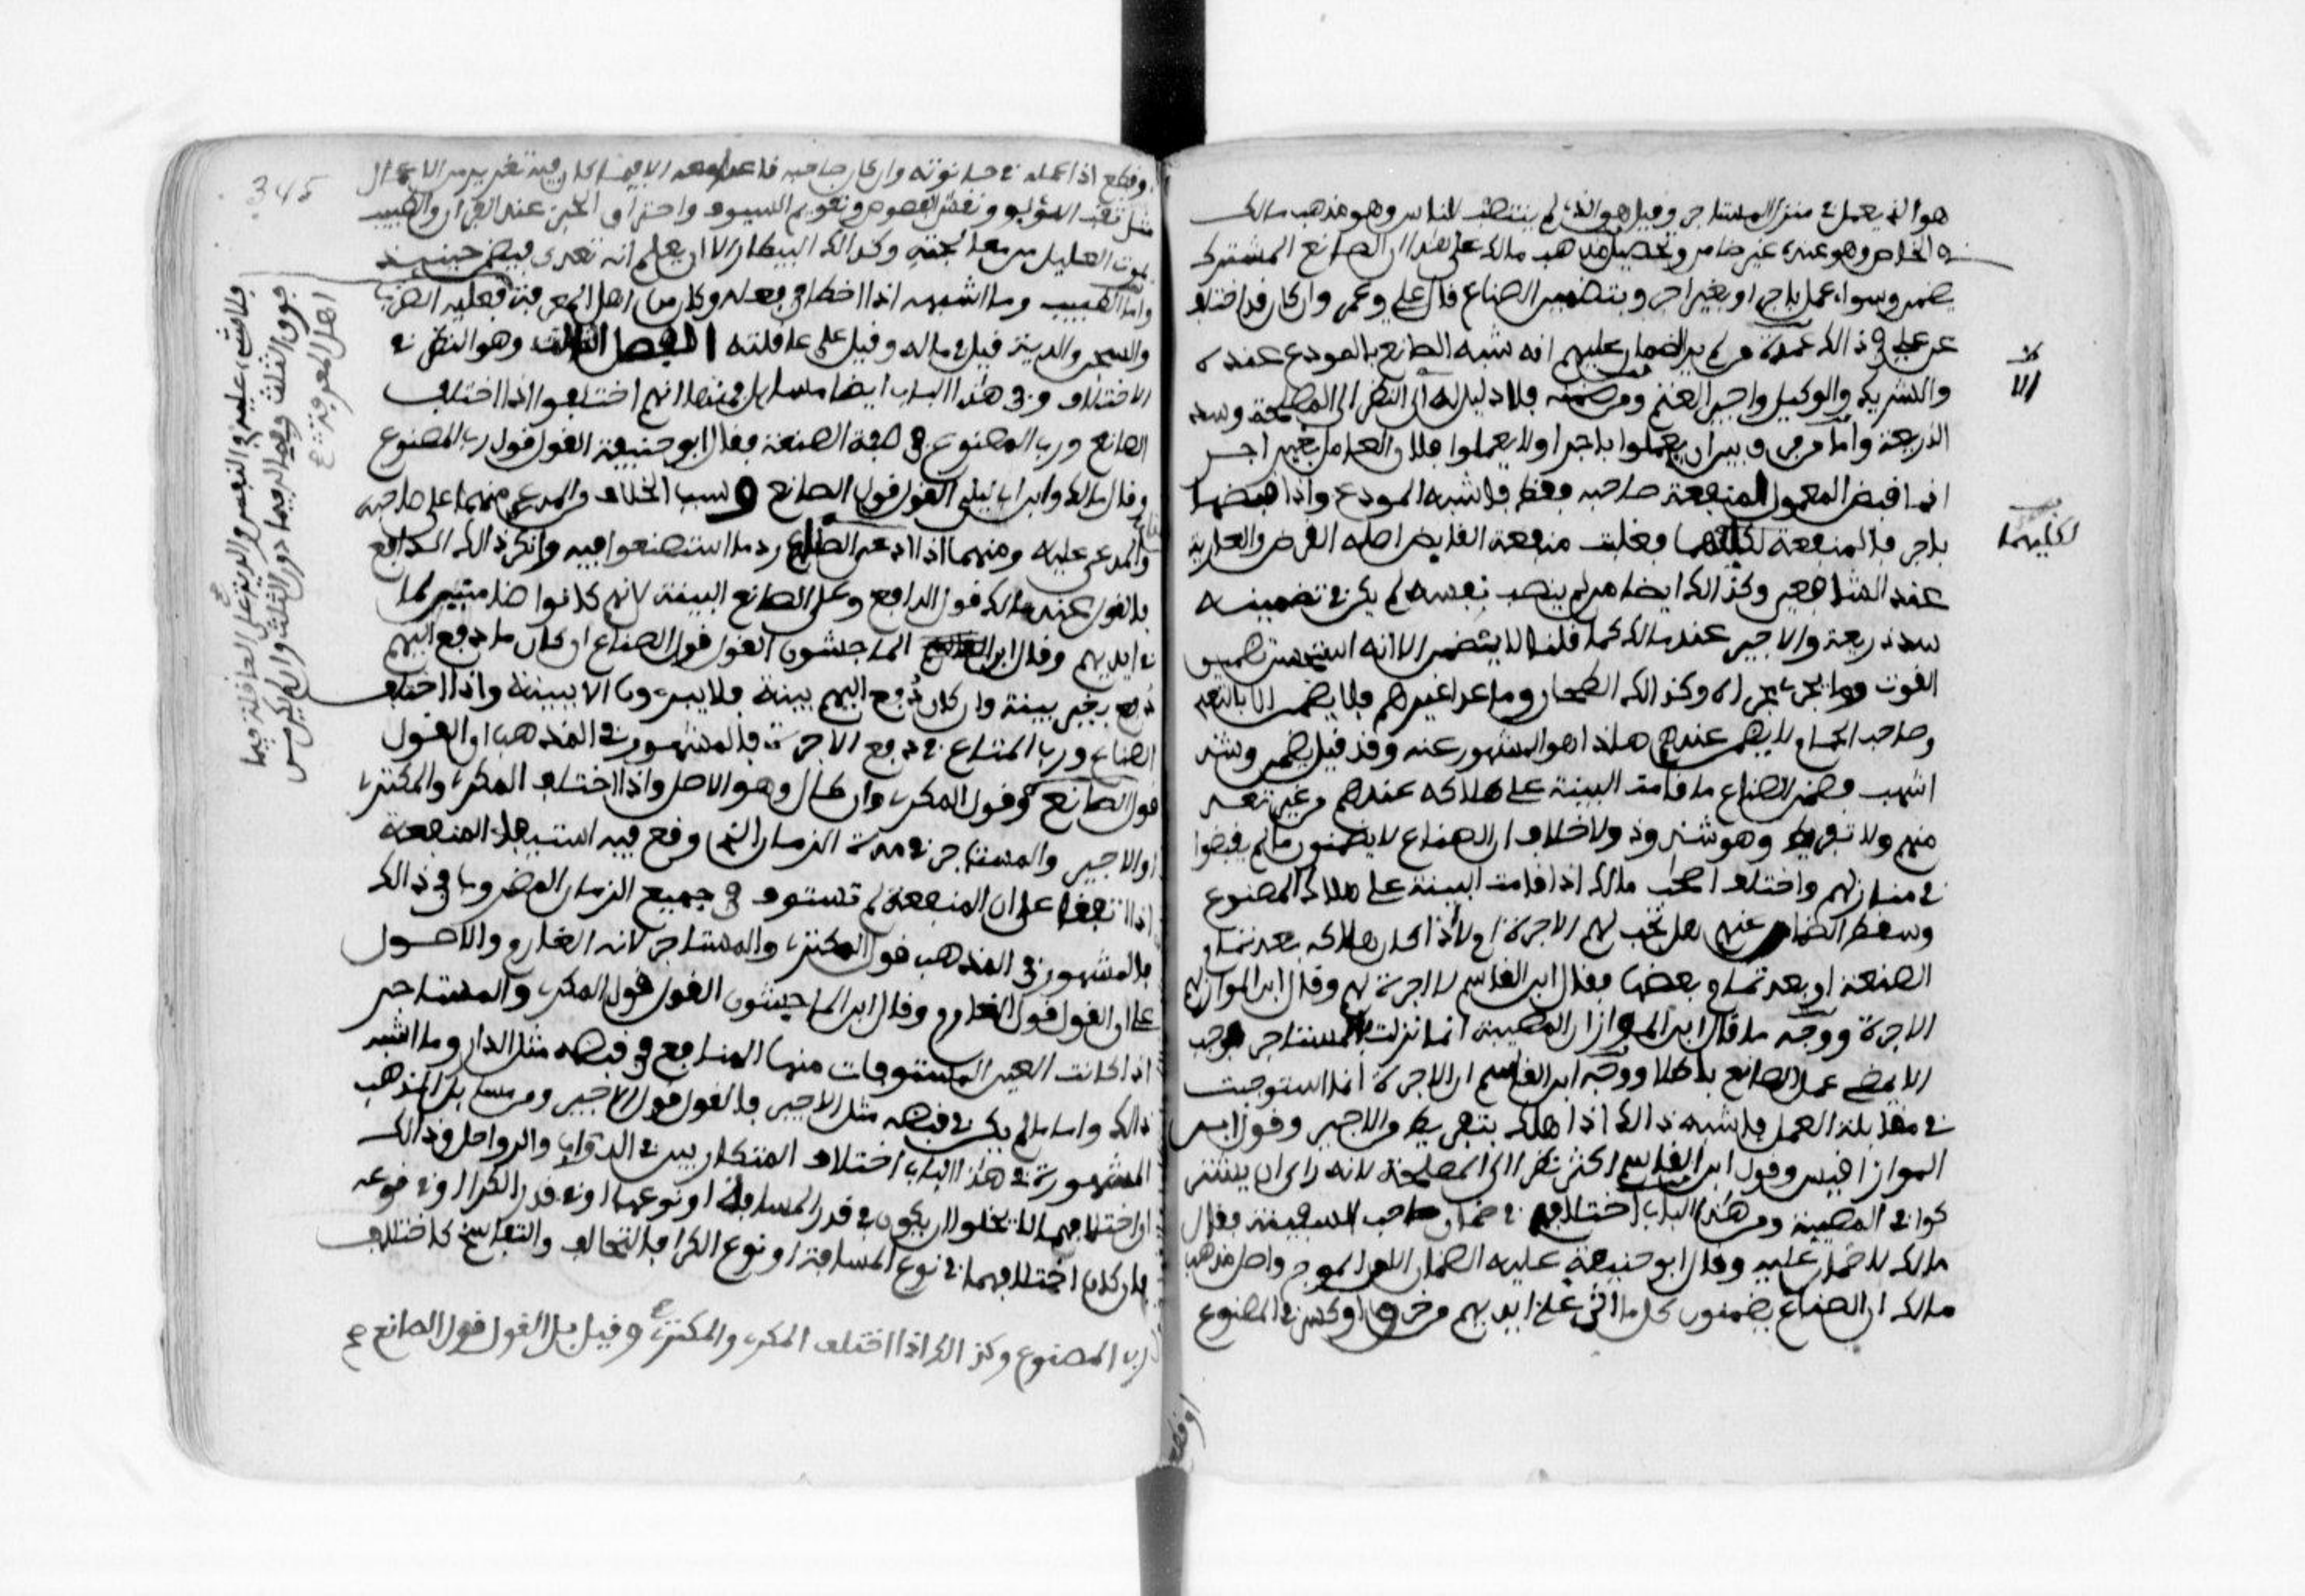 هو الذي يعمل في منزل المستاجر وقيل هو الذي لم ينتصب للناس وهو مذهب مالك
في الخاص وهو عنده غير ضامن وتحصيل مذهب مالك على هذا ان الصانع المشترك
يضمن وسواء عمل باجر او بغير اجر وبتضمين الصناع قال علي وعمر وان كان قد اختلف
عن علي في ذالك عمدة من لم ير الضمان عليهم انه شبه الصانع بالمودع عنده
والشريك والوكيل واجير الغنم ومن ضمنه فلا دليل له الا النظر الى المصلحة وسد
الذريعة واما من فرق بين ان يعملوا باجر او لا يعملوا فلان العامل بغير اجر
انما قبض المعمول لمنفعة صاحبه فقط فاشبه المودع واذا قبضها
باجر فالمنفعة لكليهما فغلبت منفعة القابض اصله القرض والعارية
عند الشافعي وكذالك ايضا من لم ينصب نفسه لم يكن في تضمينه
سد ذريعة والاجير عند مالك كما قلنا لا يضمن الا انه استحسن تضمين
القوت وما يجري مجراه وكذالك الطحان وما عدا غيرهم فلا يضمن الا بالتعدي
وصاحب الحمام لا يضمن عندهم هذا هو المشهور عنه وقد قيل يضمن وشذ
اشهب فضمن الصناع ما قامت البينة على هلاكه عندهم من غير تعد
منهم ولا تفريط وهو شذوذ ولا خلاف ان الصناع لا يضمنون ما لم يقبضوا
في منازلهم واختلف اصحاب مالك اذا قامت البينة على هلاك المصنوع
وسقط الضمان عنهم هل تجب لهم الاجرة ام لا اذا كان هلاكه بعد تمام
الصنعة او بعد تمام بعضها فقال ابن القاسم لا اجرة لهم وقال ابن المواز لهم
الاجرة ووجه ما قال ابن المواز ان المصيبة انما نزلت بالمستاجر فوجب
الا يمضي عمل الصانع باطلا ووجه ابن القاسم ان الاجرة انما استوجبت
في مقابلة العمل فاشبه ذالك اذا هلك بتفريط من الاجير وقول ابن
المواز اقيس وقول ابن القاسم اكثر نظرا الى المصلحة لانه راى ان يشتر
كوا في المصيبة ومن هذا الباب اختلافهم في ضمان صاحب السفينة فقال
مالك لا ضمان عليه وقال ابو حنيفة عليه الضمان الا من الموج واصل مذهب
مالك ان الصناع يضمنون كل ما اتى على ايديهم من خرق او كسر في المصنوع
لكليهما
او قطع
345
او قطع اذا عمله في حانوته وان كان صاحبه قاعدا معه الا فيما كان فيه تغرير من الاعمال
مثل ثقب اللؤلؤ ونقش الفصوص وتقويم السيوف واحتراق الخبز عند الفران والطبيب
يموت العليل من معالجته وكذالك البيطار الا ان يعلم انه تعدى فيضمن حينيذ
واما الطبيب وما اشبهه اذا اخطا في فعله وكان من اهل المعرفة فعليه الضرب
والسجن والدية قيل في ماله وقيل على عاقلته الفصل الثالث وهو النظر في
الاختلاف وفي هذا الباب ايضا مسايل فمنها انهم اختلفوا اذا اختلف
الصانع ورب المصنوع في صفة الصنعة فقال ابو حنيفة القول قول رب المصنوع
وقال مالك وابن ابي ليلى القول قول الصانع وسبب الخلاف من المدعي منهما على صاحبه
والمدعى عليه ومنهما اذا ادعى الصناع رد ما استصنعوا فيه وانكر ذالك الدافع
فالقول عند مالك قول الدافع وعلى الصانع البينة لانهم كانوا ضامنين لما
في ايديهم وقال ابن الماجشون القول قول الصناع ان كان ما دفع اليهم
دفع بغير بينة وان كان دفع اليهم ببينة فلا يبرءون الا ببينة واذا اختلف
الصناع ورب المتاع في دفع الاجرة فالمشهور في المذهب ان القول
قول الصانع وقول المكري وان طال وهو الاصل واذا اختلف المكري والمكتري
او الاجير والمستاجر في مدة الزمان الذي وقع فيه استيفاء المنفعة
اذا اتفقا على ان المنفعة لم تستوف في جميع الزمان المضروب في ذالك
فالمشهور في المذهب قول المكتري والمستاجر لانه الغارم والاصول
على ان القول قول الغارم وقال ابن الماجشون القول قول المكري والمستاجر
اذا كانت العين المستوفات منها المنافع في قبضه مثل الدار وما اشبه
ذالك واما ما لم يكن في قبضه مثل الاجير فالقول قول الاجير ومن مسايل المذهب
المشهورة في هذا الباب اختلاف المتكاريين في الدواب والرواحل وذالك
ان اختلافهما لا يخلو ان يكون في قدر المسافة او نوعها او في قدر الكرا او في نوعه
فان كان اختلافهما في نوع المسافة او نوع الكرا فالتحالف والتفاسخ كاختلاف
رب المصنوع وكذالك اذا اختلف المكري والمكتري وقيل بل القول قول الصانع صح
فلا شيء عليه في النفس والدية على العاقلة فيما
فوق الثلث وفي ماله فيما دون الثلث وان لم يكن من
اهل المعرفة